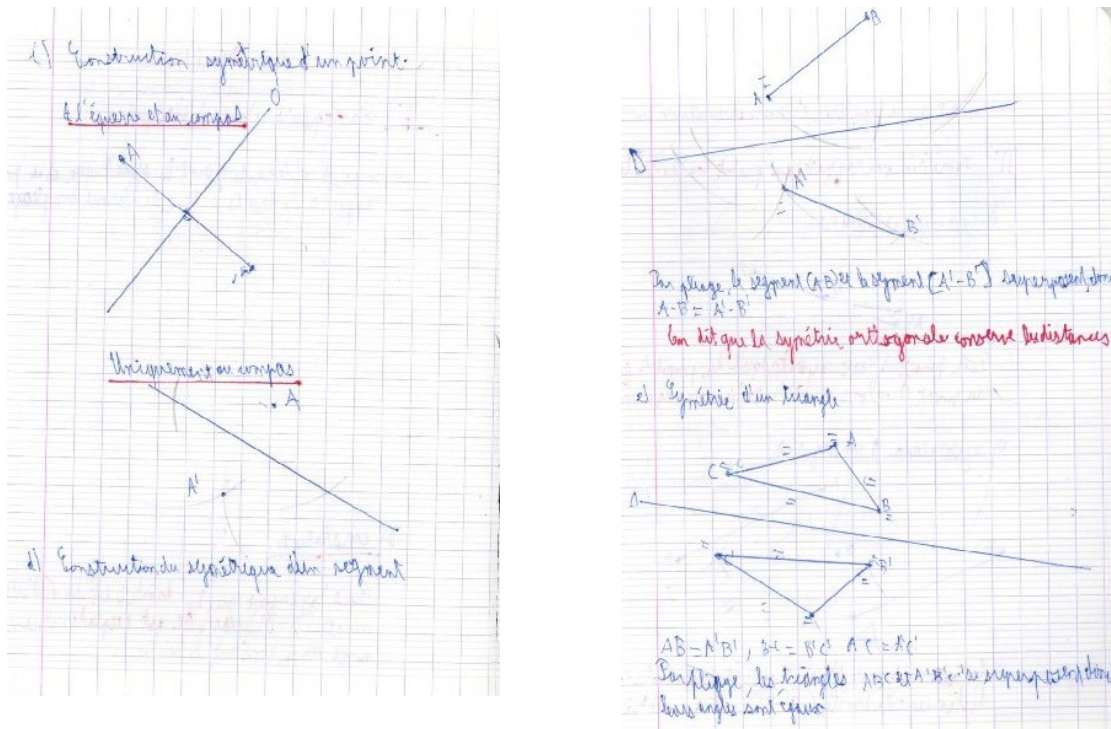 c) Construction symétrique d'un point.
A l'équerre et au compas
D
A
A'
Uniquement au compas
A
A'
d) Construction du symétrique d'un segment
B
A
D
A'
B'
Par pliage, le segment (AB) et le segment [A'-B'] superposent, donc
A-B = A'-B'
On dit que la symétrie orthogonale conserve les distances
e) Symétrie d'un triangle
A
C
B
D
B'
AB = A'B', BC = B'C' AC = A'C'
Par pliage, les triangles ABC et A'B'C' se superposent donc
leurs angles sont égaux